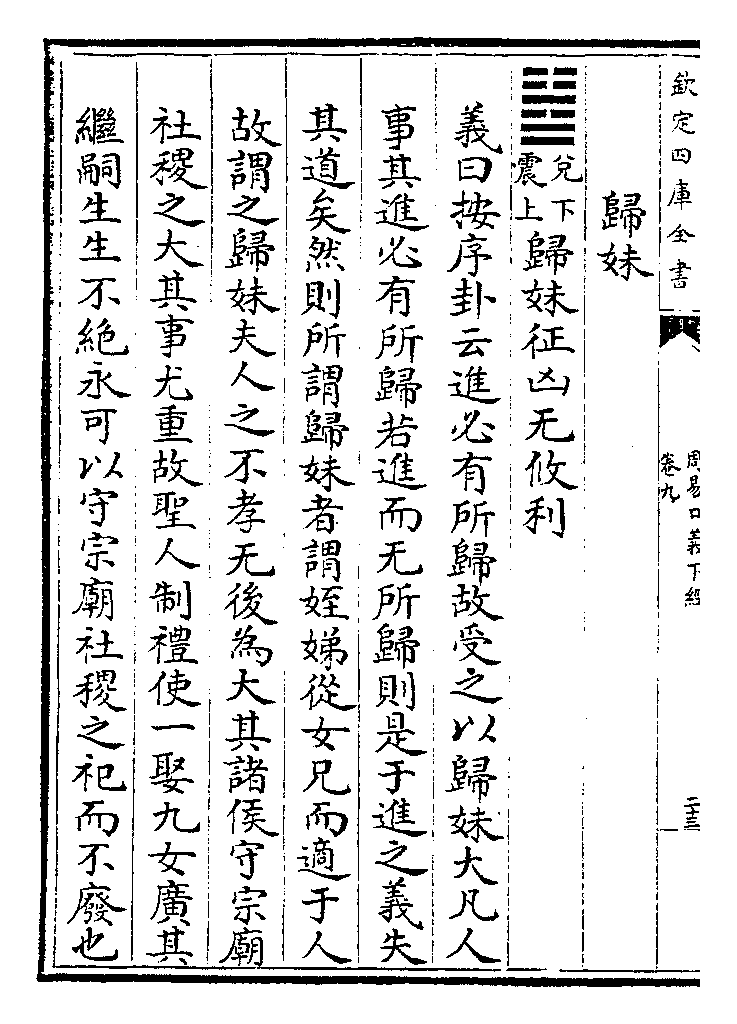 欽定四庫全書
周易口義下經
卷九
二十三
歸妹
䷵兌下震上歸妹征凶无攸利
義曰按序卦云進必有所歸故受之以歸妹大凡人
事其進必有所歸若進而无所歸則是于進之義失
其道矣然則所謂歸妹者謂姪娣從女兄而適于人
故謂之歸妹夫人之不孝无後為大其諸侯守宗廟
社稷之大其事尤重故聖人制禮使一娶九女廣其
繼嗣生生不絶永可以守宗廟社稷之祀而不廢也